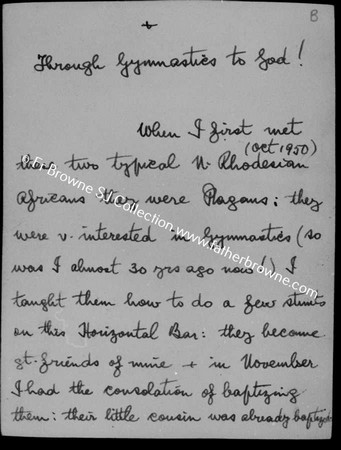 B
+
Through Gymnastics to God!
When I first met
(Oct 1950)
these two typical N. Rhodesian
Africans they were Pagans; they
were v. interested in Gymnastics (so
was I almost 30 yrs ago now!) I
taught them how to do a few stunts
on this Horizontal Bar: they became
gt. friends of mine + in November
I had the consolation of baptizing
them: their little cousin was already baptized
Fr Browne S.J. Collection. www.fatherbrowne.com